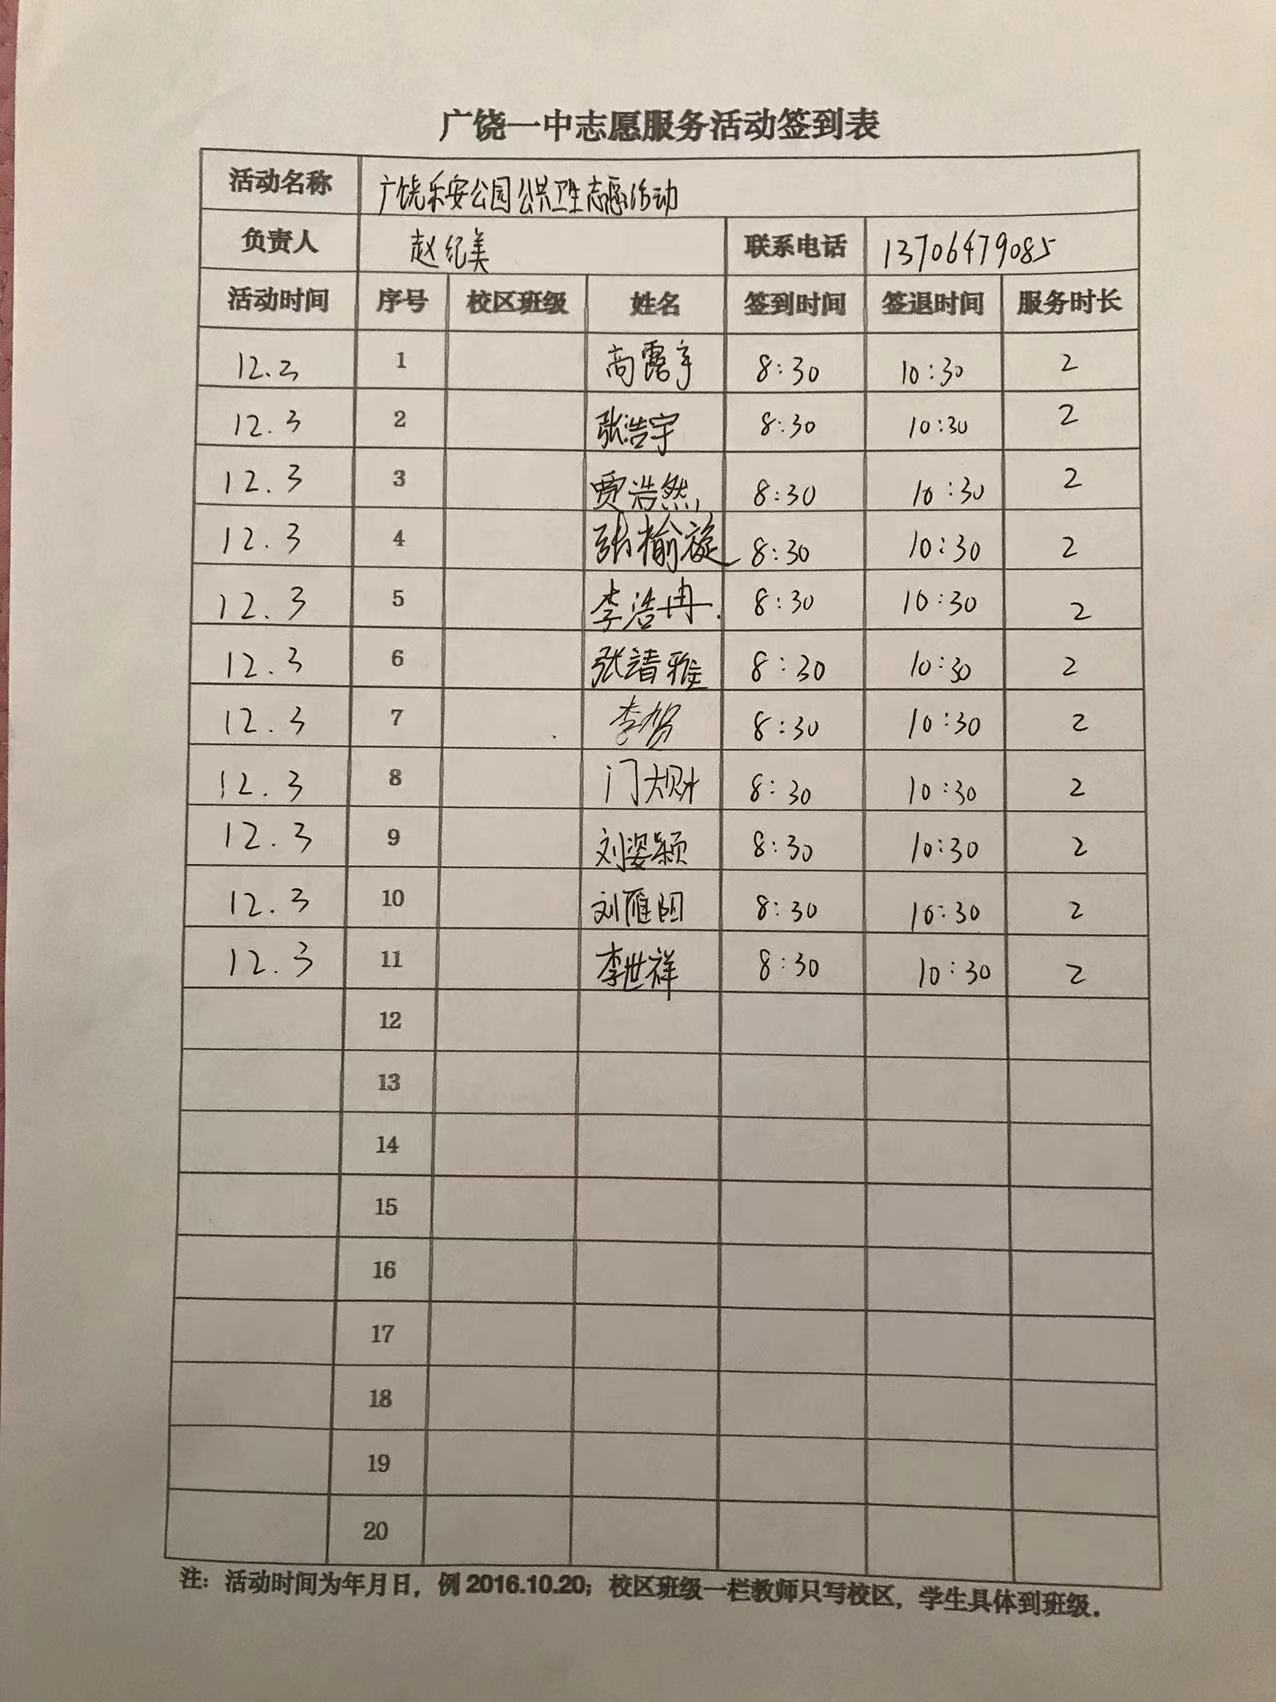 广饶一中志愿服务活动签到表
活动名称 广饶乐安公园公共卫生志愿活动
负责人 赵纪美 联系电话 13706479085
活动时间 序号 校区班级 姓名 签到时间 签退时间 服务时长
12.3 1 高露宇 8:30 10:30 2
12.3 2 张浩宇 8:30 10:30 2
12.3 3 贾浩然 8:30 10:30 2
12.3 4 张榆旋 8:30 10:30 2
12.3 5 李浩冉 8:30 10:30 2
12.3 6 张靖雅 8:30 10:30 2
12.3 7 李贺 8:30 10:30 2
12.3 8 门大财 8:30 10:30 2
12.3 9 刘姿颖 8:30 10:30 2
12.3 10 刘雁 8:30 10:30 2
12.3 11 李世祥 8:30 10:30 2
12
13
14
15
16
17
18
19
20
注：活动时间为年月日，例2016.10.20；校区班级一栏教师只写校区，学生具体到班级．